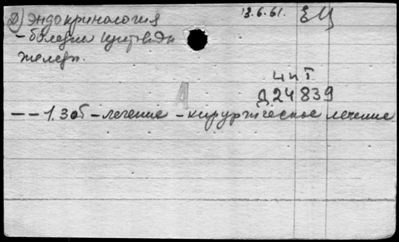 2) Эндокринология 13.6.61. ЕЦ
- болезни щитовидн
железы.
ЦИТ
Д24839
-- 1. Зоб - лечение - хирургическое лечение